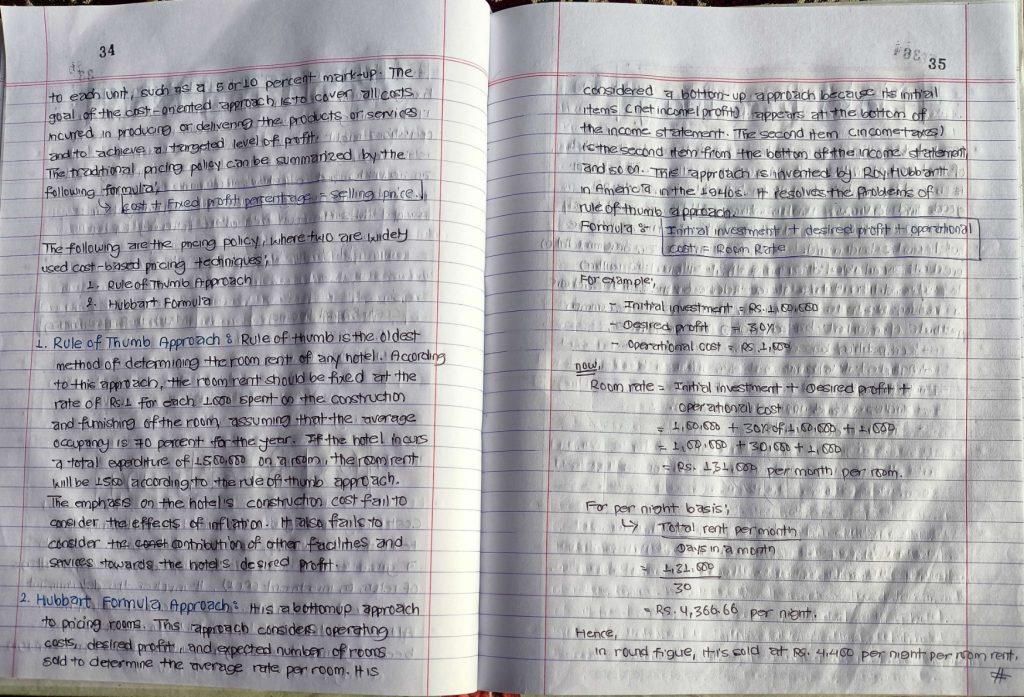 34
to each unit, such as a 5 or 10 percent mark-up. The
goal of the cost-oriented approach is to cover all costs
incurred in producing or delivering the products or services
and to achieve a targeted level of profit.
The traditional pricing policy can be summarized by the
following formula;
↳ cost + Fixed profit percentage = selling price.
The following are the pricing policy, where two are widely
used cost-based pricing techniques;
1. Rule of Thumb Approach
2. Hubbart Formula
1. Rule of Thumb Approach : Rule of thumb is the oldest
method of determining the room rent of any hotel. According
to this approach, the room rent should be fixed at the
rate of Rs.1 for each 1000 spent on the construction
and furnishing of the room, assuming that the average
occupany is 70 percent for the year. If the hotel incurs
a total expenditure of 1500,000 on a room, the room rent
will be 1500 according to the rule of thumb approach.
The emphasis on the hotel's construction cost fail to
consider the effects of inflation. It also fails to
consider the const contribution of other facilities and
services towards the hotel's desired profit.
2. Hubbart Formula Approach : It is a bottom up approach
to pricing rooms. This approach considers operating
costs, desired profit, and expected number of rooms
sold to determine the average rate per room. It is
35
considered a bottom-up approach because its initial
items (net income(profit) appears at the bottom of
the income statement. The second item (income taxes)
is the second item from the bottom of the income statement,
and so on. This approach is invented by Roy Hubbart
in America in the 1940s. It resolves the problems of
rule of thumb approach.
Formula : Initial investment + desired profit + operational
cost = Room Rate
For example;
- Initial investment = Rs. 1,00,000
- Desired profit = 30%
- Operational cost = Rs. 1,000
now,
Room rate = Initial investment + Desired profit +
operational cost
= 1,00,000 + 30% of 1,00,000 + 1,000
= 1,00,000 + 30,000 + 1,000
= Rs. 131,000 per month per room.
For per night basis;
↳ Total rent per month
Days in a month
= 1,31,000
30
= Rs. 4,366.66 per night.
Hence,
in round figue, it is sold at Rs. 4,400 per night per room rent.
#